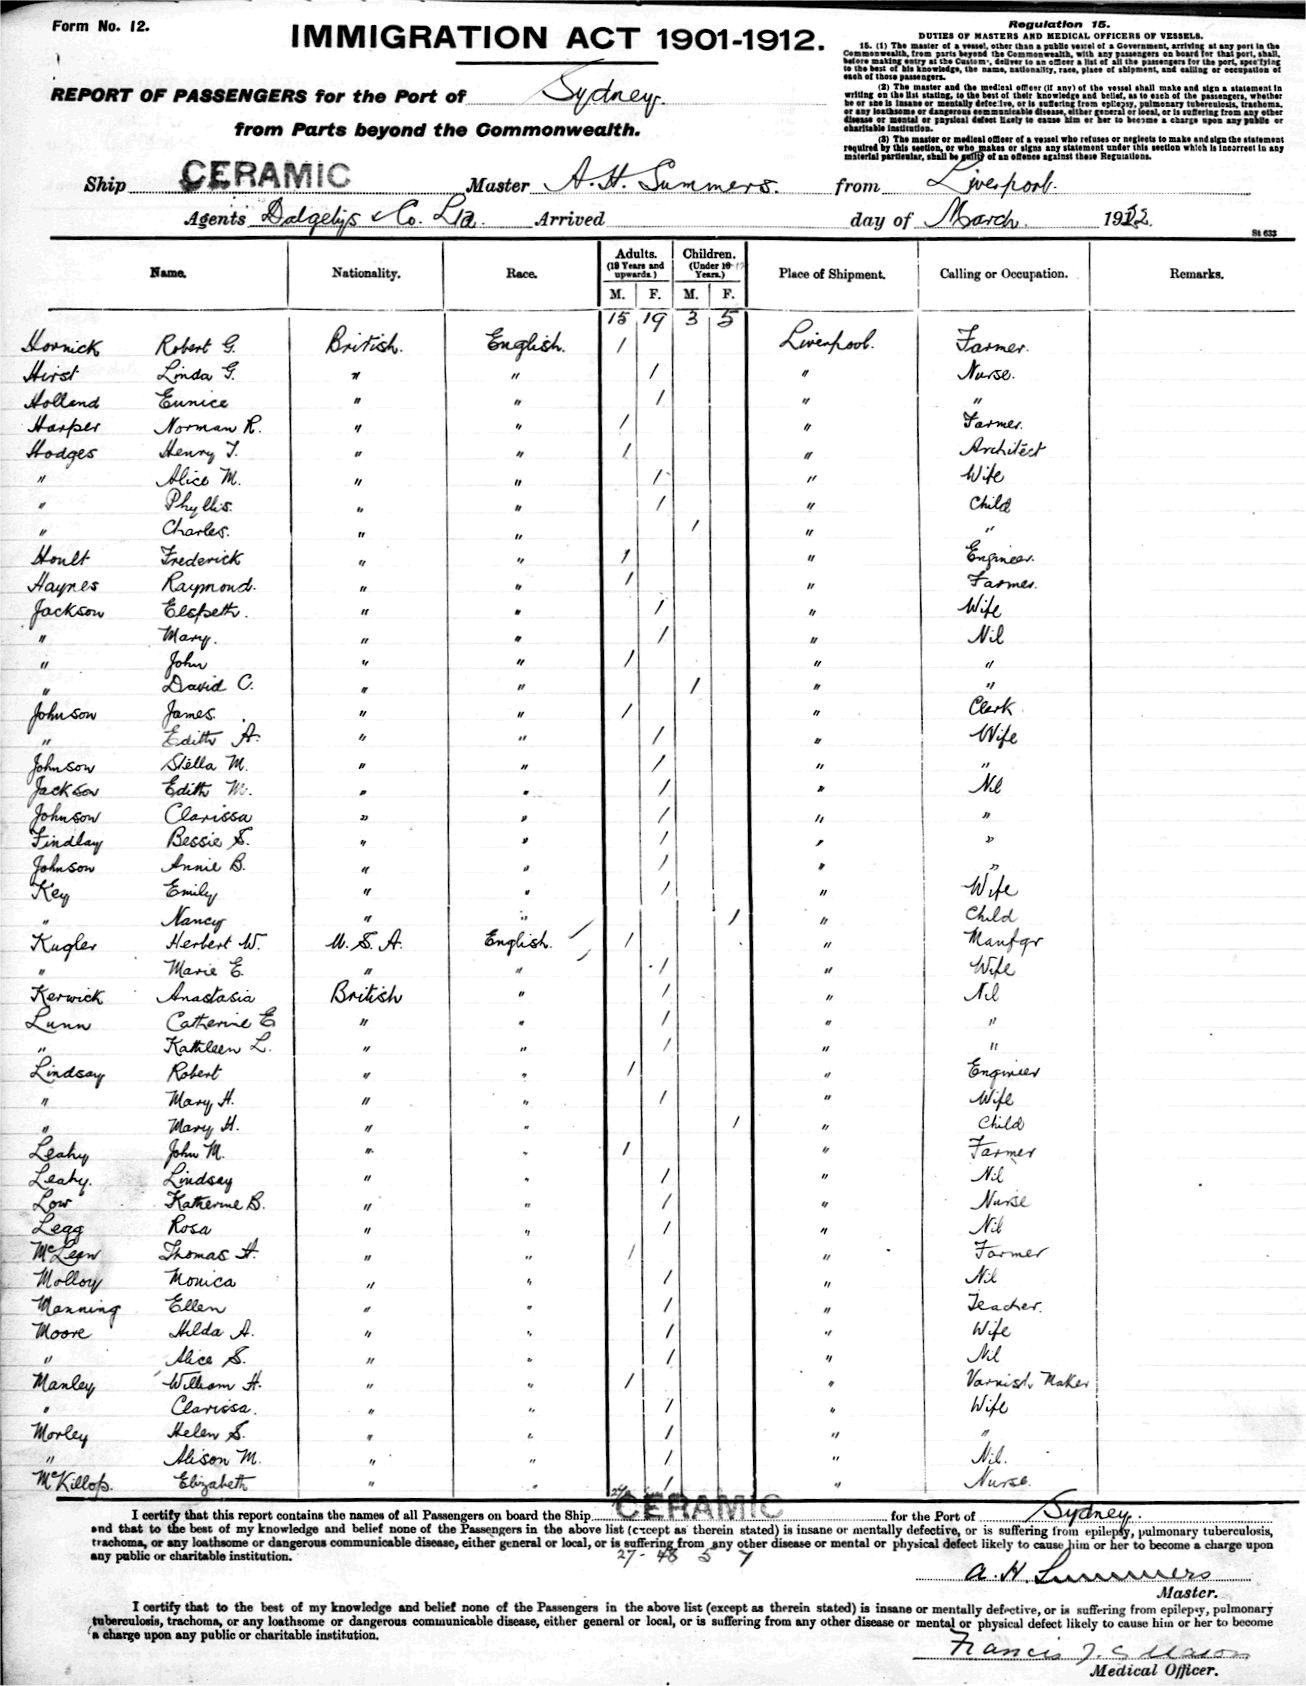 Form No. 12.
IMMIGRATION ACT 1901-1912.
Regulation 15.
DUTIES OF MASTERS AND MEDICAL OFFICERS OF VESSELS.
15. (1) The master of a vessel, other than a public vessel of a Government, arriving at any port in the
Commonwealth, from parts beyond the Commonwealth, with any passengers on board for that port, shall,
before making entry at the Customs, deliver to an officer a list of all the passengers for the port, specifying
to the best of his knowledge, the name, nationality, race, place of shipment, and calling or occupation of
each of those passengers.
(2) The master and the medical officer (if any) of the vessel shall make and sign a statement in
writing on the list stating, to the best of their knowledge and belief, as to each of the passengers, whether
he or she is insane or mentally defective, or is suffering from epilepsy, pulmonary tuberculosis, trachoma,
or any loathsome or dangerous communicable disease, either general or local, or is suffering from any other
disease or mental or physical defect likely to cause him or her to become a charge upon any public or
charitable institution.
(3) The master or medical officer of a vessel who refuses or neglects to make and sign the statement
required by this section, or who makes or signs any statement under this section which is incorrect in any
material particular, shall be guilty of an offence against these Regulations.
REPORT OF PASSENGERS for the Port of Sydney.
from Parts beyond the Commonwealth.
Ship CERAMIC Master A. H. Summers. from Liverpool.
Agents Dalgetys & Co. Ltd. Arrived day of March. 1922.
St 633
Name. Nationality. Race. Adults. (18 Years and upwards.) M. F. Children. (Under 18 Years.) M. F. Place of Shipment. Calling or Occupation. Remarks.
15 19 3 5
Hornick Robert G. British. English. / Liverpool. Farmer.
Hirst Linda G. " " / " Nurse.
Holland Eunice " " / " "
Harper Norman R. " " / " Farmer.
Hodges Henry T. " " / " Architect
" Alice M. " " / " Wife
" Phyllis. " " / " Child
" Charles. " " / " "
Hoult Frederick " " / " Engineer.
Haynes Raymond. " " / " Farmer.
Jackson Elspeth. " " / " Wife
" Mary. " " / " Nil
" John " " / " "
" David C. " " / " "
Johnson James. " " / " Clerk
" Edith A. " " / " Wife
Johnson Stella M. " " / " "
Jackson Edith M. " " / " Nil
Johnson Clarissa " " / " "
Findlay Bessie S. " " / " "
Johnson Annie B. " " / " "
Key Emily " " / " Wife
" Nancy " " / " Child
Kugler Herbert W. U. S. A. English. / " Manfgr
" Marie E. " " / " Wife
Kerwick Anastasia British " / " Nil
Lunn Catherine E " " / " "
" Kathleen L. " " / " "
Lindsay Robert " " / " Engineer
" Mary H. " " / " Wife
" Mary H. " " / " Child
Leahy John M. " " / " Farmer
Leahy. Lindsay " " / " Nil
Low Katherine B. " " / " Nurse
Legg Rosa " " / " Nil
McLean Thomas H. " " / " Farmer
Molloy Monica " " / " Nil
Manning Ellen " " / " Teacher.
Moore Hilda A. " " / " Wife
" Alice S. " " / " Nil
Manley William H. " " / " Varnish Maker
" Clarissa. " " / " Wife
Morley Helen S. " " / " "
" Alison M. " " / " Nil.
McKillop. Elizabeth " " / " Nurse.
I certify that this report contains the names of all Passengers on board the Ship CERAMIC for the Port of Sydney.
and that to the best of my knowledge and belief none of the Passengers in the above list (except as therein stated) is insane or mentally defective, or is suffering from epilepsy, pulmonary tuberculosis,
trachoma, or any loathsome or dangerous communicable disease, either general or local, or is suffering from any other disease or mental or physical defect likely to cause him or her to become a charge upon
any public or charitable institution.
27 - 48 5 7
A. H. Summers
Master.
I certify that to the best of my knowledge and belief none of the Passengers in the above list (except as therein stated) is insane or mentally defective, or is suffering from epilepsy, pulmonary
tuberculosis, trachoma, or any loathsome or dangerous communicable disease, either general or local, or is suffering from any other disease or mental or physical defect likely to cause him or her to become
a charge upon any public or charitable institution.
Francis J. Mason
Medical Officer.